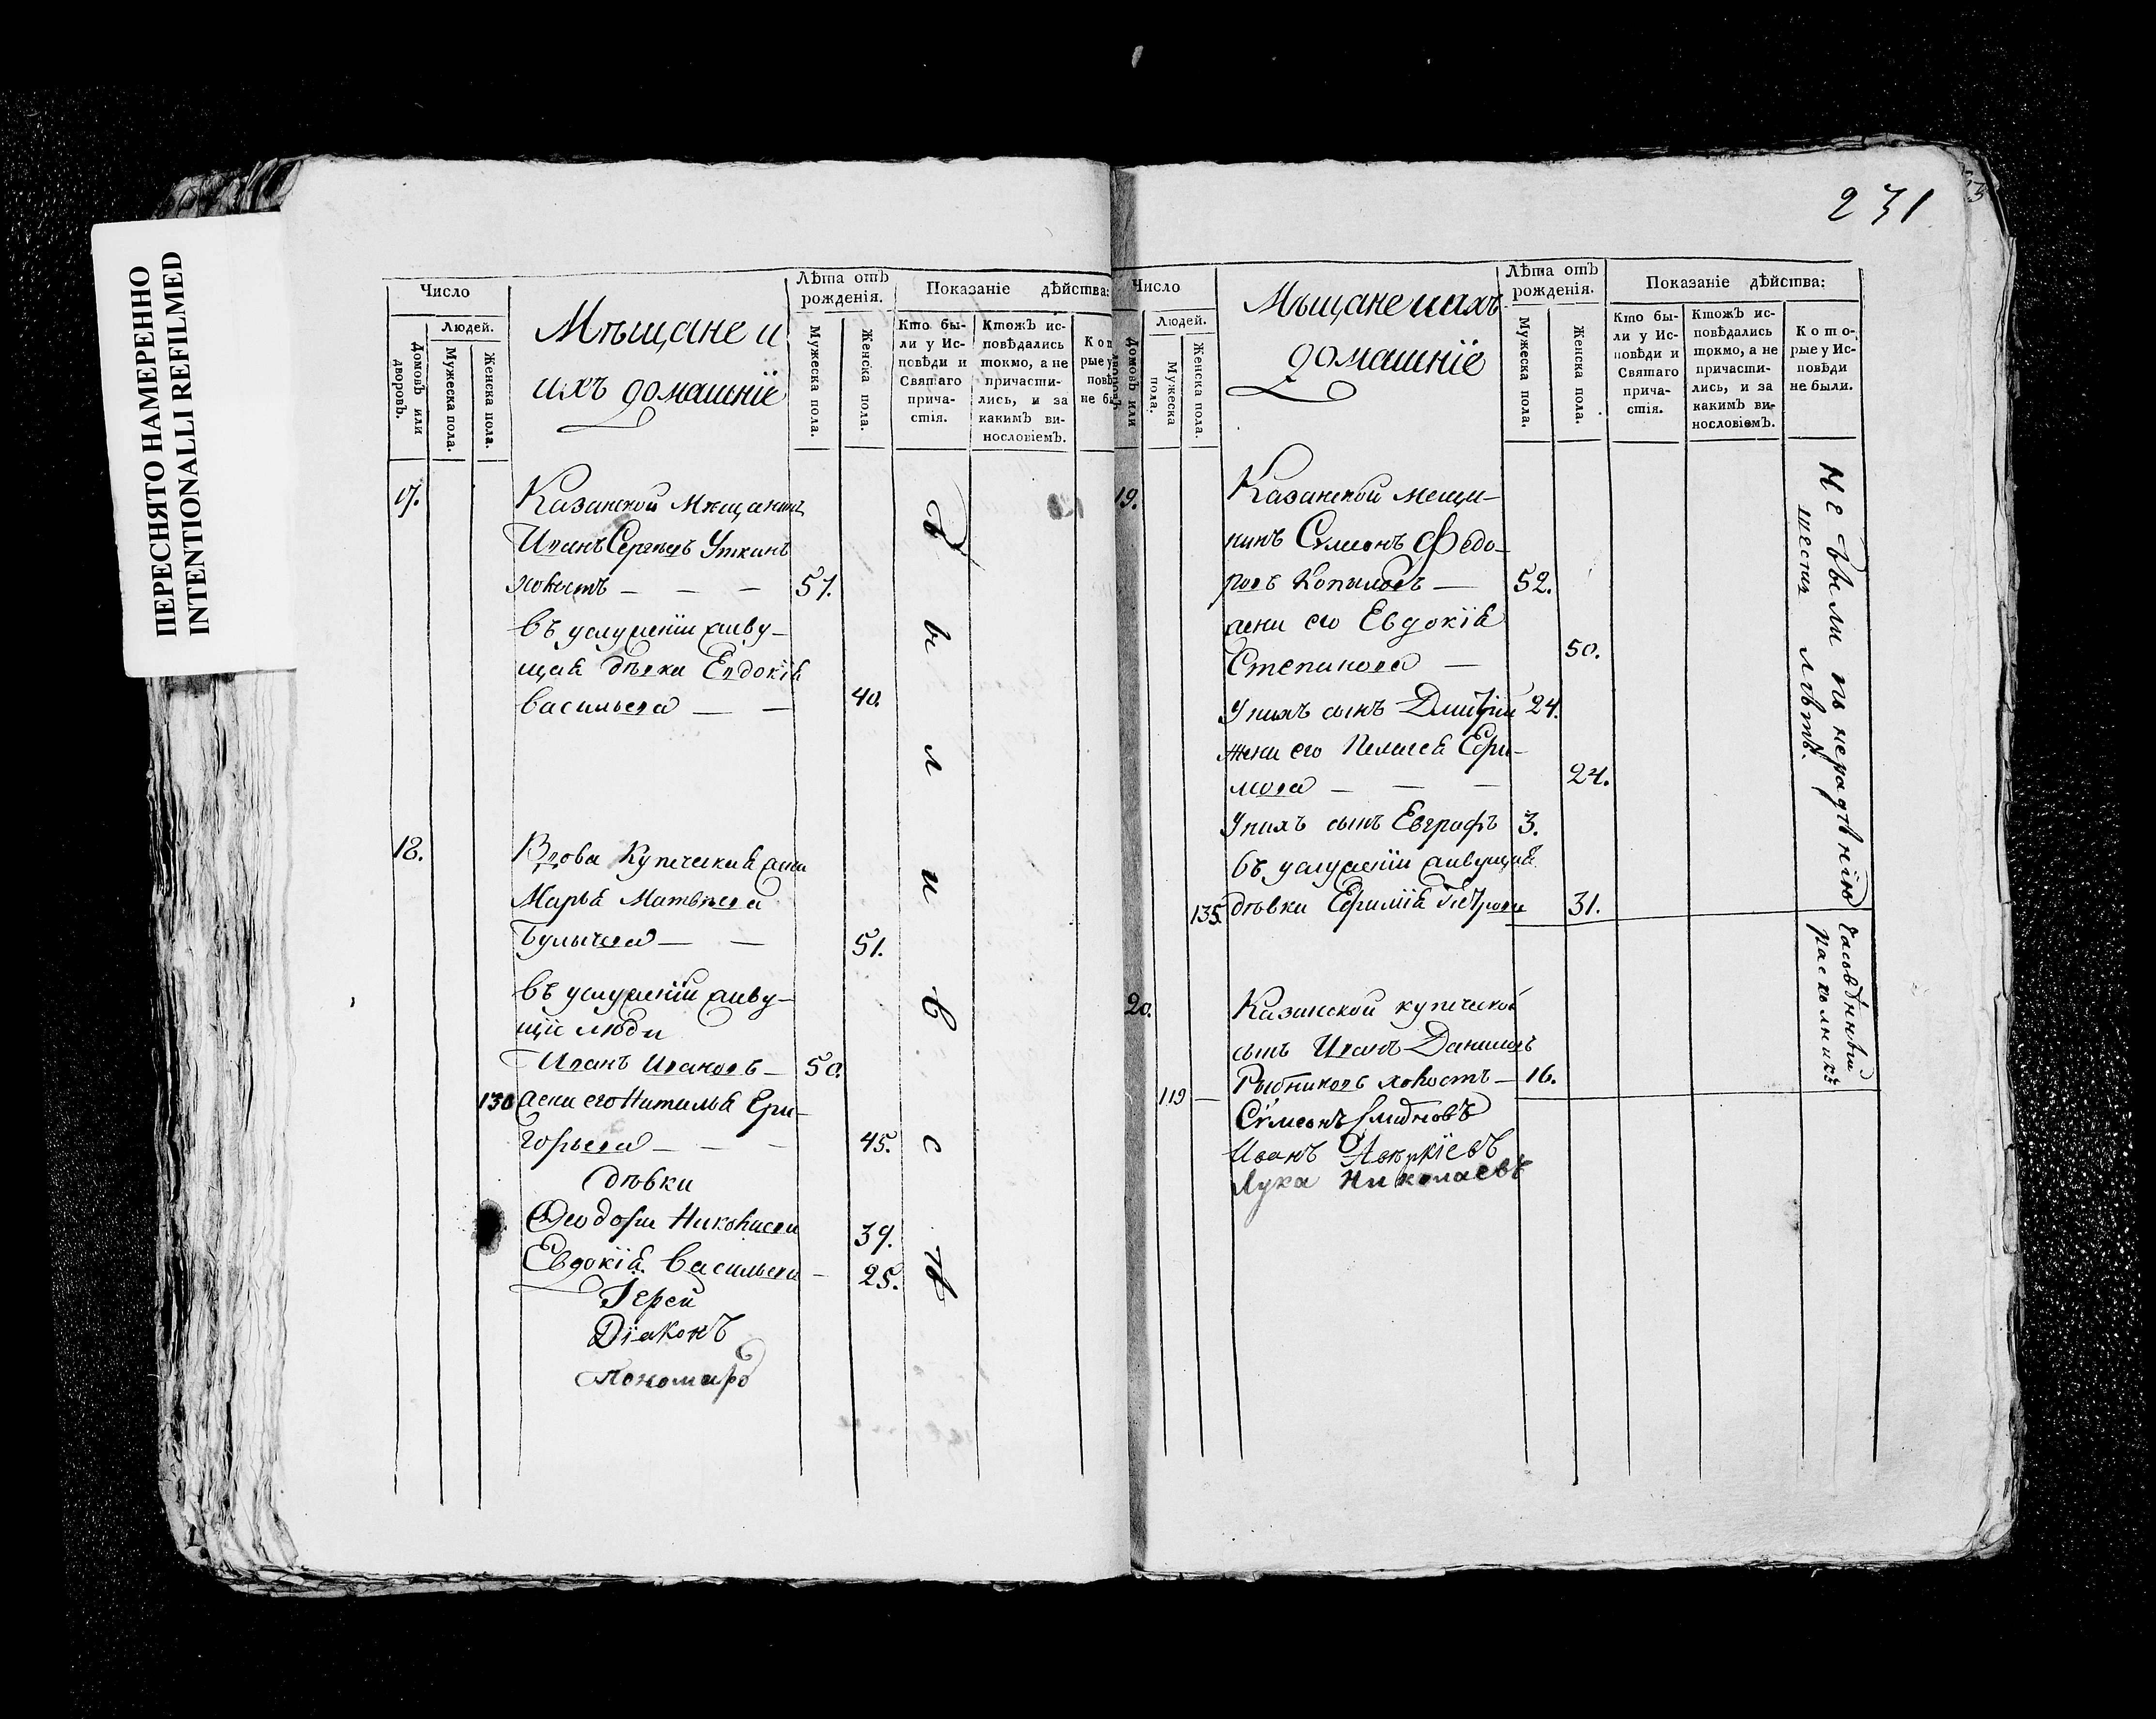 ПЕРЕСНЯТО НАМЕРЕННО
INTENTIONALLI REFILMED
Число
Людей.
Домовъ или дворовъ.
Мужеска пола.
Женска пола.
Мѣщане и
ихъ домашніе
Лѣта отъ рожденія.
Мужеска пола.
Женска пола.
Показаніе дѣйства:
Кто были у Исповѣди и Святаго причастія.
Ктожъ исповѣдались токмо, а не причастились, и за какимъ винословіемъ.
17.
Казанской Мѣщанинъ
Иванъ Сергѣевъ Уткинъ
холостъ — — — 57.
въ услуженіи живу-
щая дѣвка Евдокія
Васильева — — 40.
18.
Вдова Купеческая жена
Марья Матвѣева
Булычева — — 51.
въ услуженіи живу-
щіе люди
Иванъ Ивановъ — 50.
130 жена его Наталья Гри-
горьева — — — 45.
дѣвки
Ѳеодора Николаева 39.
Евдокія Васильева — 25.
Іерей
Діаконъ
Пономарь
были всѣ
231
Число
Людей.
Домовъ или дворовъ
Мужеска пола.
Женска пола.
Мѣщане и ихъ
домашніе
Лѣта отъ рожденія.
Мужеска пола.
Женска пола.
Показаніе дѣйства:
Кто были у Исповѣди и Святаго причастія.
Ктожъ исповѣдались токмо, а не причастились, и за какимъ винословіемъ.
Которые у Исповѣди не были.
19.
Казанской меща-
нинъ Сѵмеонъ Федо-
ровъ Копыловъ — 52.
жена его Евдокія
Степанова — 50.
У нихъ сынъ Дмитрій 24.
жена его Пелагея Ефи-
мова — — — 24.
У нихъ сынъ Евграфъ 3.
въ услуженіи живущая
135. дѣвка Ефимія Петрова 31.
Не были по нерадѣнію
шесть лѣтъ.
20.
Казанской купеческой
сынъ Иванъ Даниловъ
Рыбниковъ холостъ — 16.
119 —
раскольникъ
Сѵмеонъ
Иванъ
Лука Николаевъ